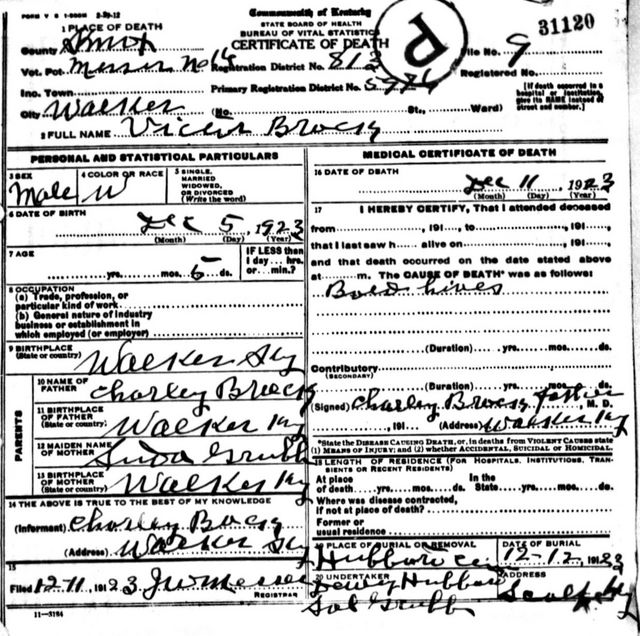 FORM V S 1-500M 2-20-12
Commonwealth of Kentucky
STATE BOARD OF HEALTH
BUREAU OF VITAL STATISTICS
CERTIFICATE OF DEATH
P
31120
1 PLACE OF DEATH
County Knox
File No. 9
Vot. Pct. Messer No 16 Registration District No. 813
Registered No.
Inc. Town Primary Registration District No. 5986
[If death occurred in a hospital or institution, give its NAME instead of street and number.]
City Walker (No. St., Ward)
2 FULL NAME Victor Brock
PERSONAL AND STATISTICAL PARTICULARS
3 SEX Male
4 COLOR OR RACE W
5 SINGLE, MARRIED WIDOWED, OR DIVORCED (Write the word)
6 DATE OF BIRTH
Dec 5, 1923
(Month) (Day) (Year)
7 AGE
IF LESS than 1 day ... hrs. or ... min.?
yrs. mos. 5 ds.
8 OCCUPATION
(a) Trade, profession, or particular kind of work
(b) General nature of industry business or establishment in which employed (or employer)
9 BIRTHPLACE (State or country) Walker Ky
PARENTS
10 NAME OF FATHER Charley Brock
11 BIRTHPLACE OF FATHER (State or country) Walker Ky
12 MAIDEN NAME OF MOTHER Grubb
13 BIRTHPLACE OF MOTHER (State or country) Walker Ky
14 THE ABOVE IS TRUE TO THE BEST OF MY KNOWLEDGE
(Informant) Charley Brock
(Address) Walker Ky
15
Filed 12-11, 1923 REGISTRAR
11-3184
MEDICAL CERTIFICATE OF DEATH
16 DATE OF DEATH
Dec 11, 1923
(Month) (Day) (Year)
17 I HEREBY CERTIFY, That I attended deceased
from , 191 , to , 191 ,
that I last saw h alive on , 191 ,
and that death occurred on the date stated above
at m. The CAUSE OF DEATH* was as follows:
Bold hives
(Duration) yrs. mos. ds.
Contributory
(SECONDARY)
(Duration) yrs. mos. ds.
(Signed) Charley Brock father M. D.
, 191 (Address) Walker Ky
*State the DISEASE CAUSING DEATH, or, in deaths from VIOLENT CAUSES state
(1) MEANS OF INJURY; and (2) whether ACCIDENTAL, SUICIDAL or HOMICIDAL.
18 LENGTH OF RESIDENCE (FOR HOSPITALS, INSTITUTIONS, TRANSIENTS OR RECENT RESIDENTS)
At place of death yrs. mos. ds. In the State yrs. mos. ds.
Where was disease contracted, if not at place of death?
Former or usual residence
19 PLACE OF BURIAL OR REMOVAL
DATE OF BURIAL
Hubbard 12-12, 1923
20 UNDERTAKER
ADDRESS
Dewey Hubbard
Sol Grubb
Scalf Ky